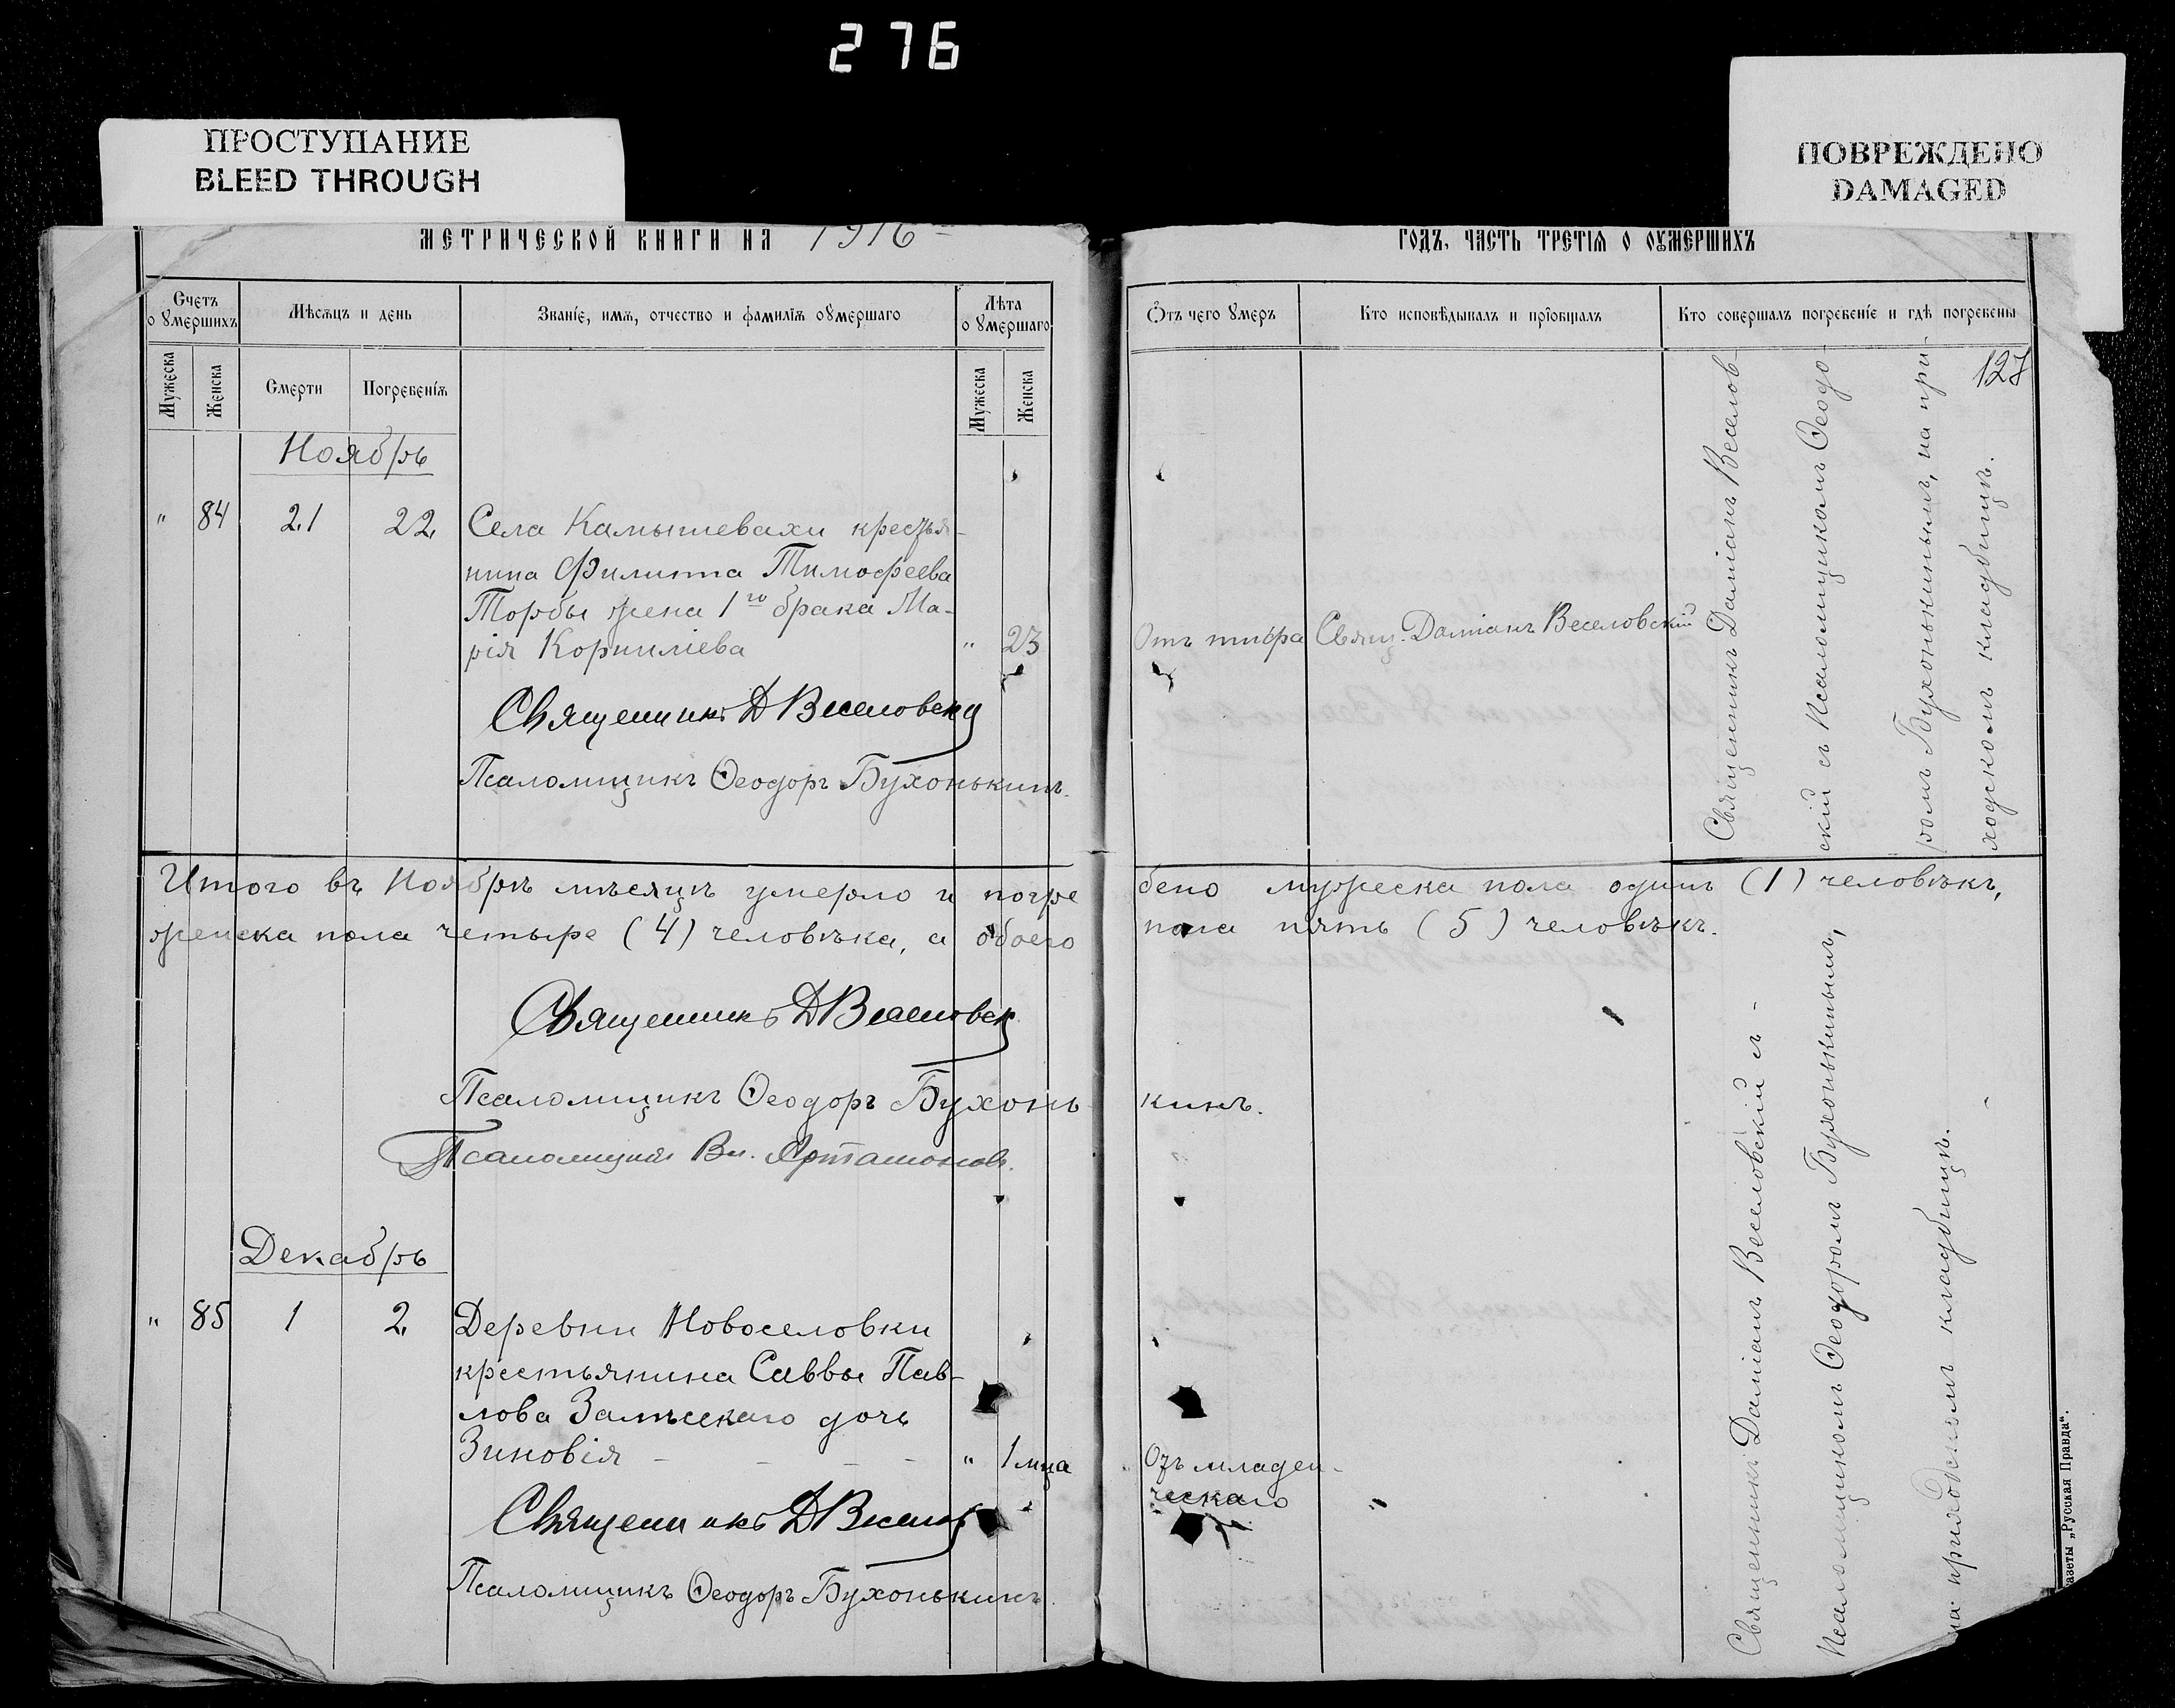 276
ПРОСТУПАНИЕ
BLEED THROUGH
ПОВРЕЖДЕНО
DAMAGED
МЕТРИЧЕСКОЙ КНИГИ НА 1916
ГОДЪ, ЧАСТЬ ТРЕТІЯ О ОУМЕРШИХЪ
Счетъ о умершихъ
Мѣсяцъ и день
Званіе, имя, отчество и фамилія оумершаго
Лѣта о умершаго
Отъ чего умеръ
Кто исповѣдывалъ и пріобщалъ
Кто совершалъ погребеніе и гдѣ погребены
Мужеска
Женска
Смерти
Погребенія
Мужеска
Женска
127
Ноябрь
" 84 21 22 Села Камышевахи крестья-
нина Филиппа Тимофеева
Торбы жена 1го брака Ма-
рія Корниліева " 23 Отъ тифа Свящ. Даміанъ Веселовскій
Священникъ Д Веселовскій
Псаломщикъ Ѳеодоръ Бухонькинъ.
Священникъ Даміанъ Веселов-
скій съ Псаломщикомъ Ѳеодо-
ромъ Бухонькинымъ, на при-
ходскомъ кладбищѣ.
Итого въ Ноябрѣ мѣсяцѣ умерло и погре бено мужеска пола одинъ (1) человѣкъ,
женска пола четыре (4) человѣка, а обоего пола пять (5) человѣкъ.
Священникъ Д Веселовск
Псаломщикъ Ѳеодоръ Бухонь кинъ.
Псаломщикъ Вл. Артамоновъ.
Декабрь
" 85 1 2 Деревни Новоселовки
крестьянина Саввы Пав-
лова Залѣсскаго дочь
Зиновія - - - - " 1 мца Отъ младен-
ческаго "
Священникъ Д Весело
Псаломщикъ Ѳеодоръ Бухонькинъ.
Священникъ Даміанъ Веселовскій съ -
Псаломщикомъ Ѳеодоромъ Бухонькинымъ,
на приходскомъ кладбищѣ. -
газеты „Русская Правда“.